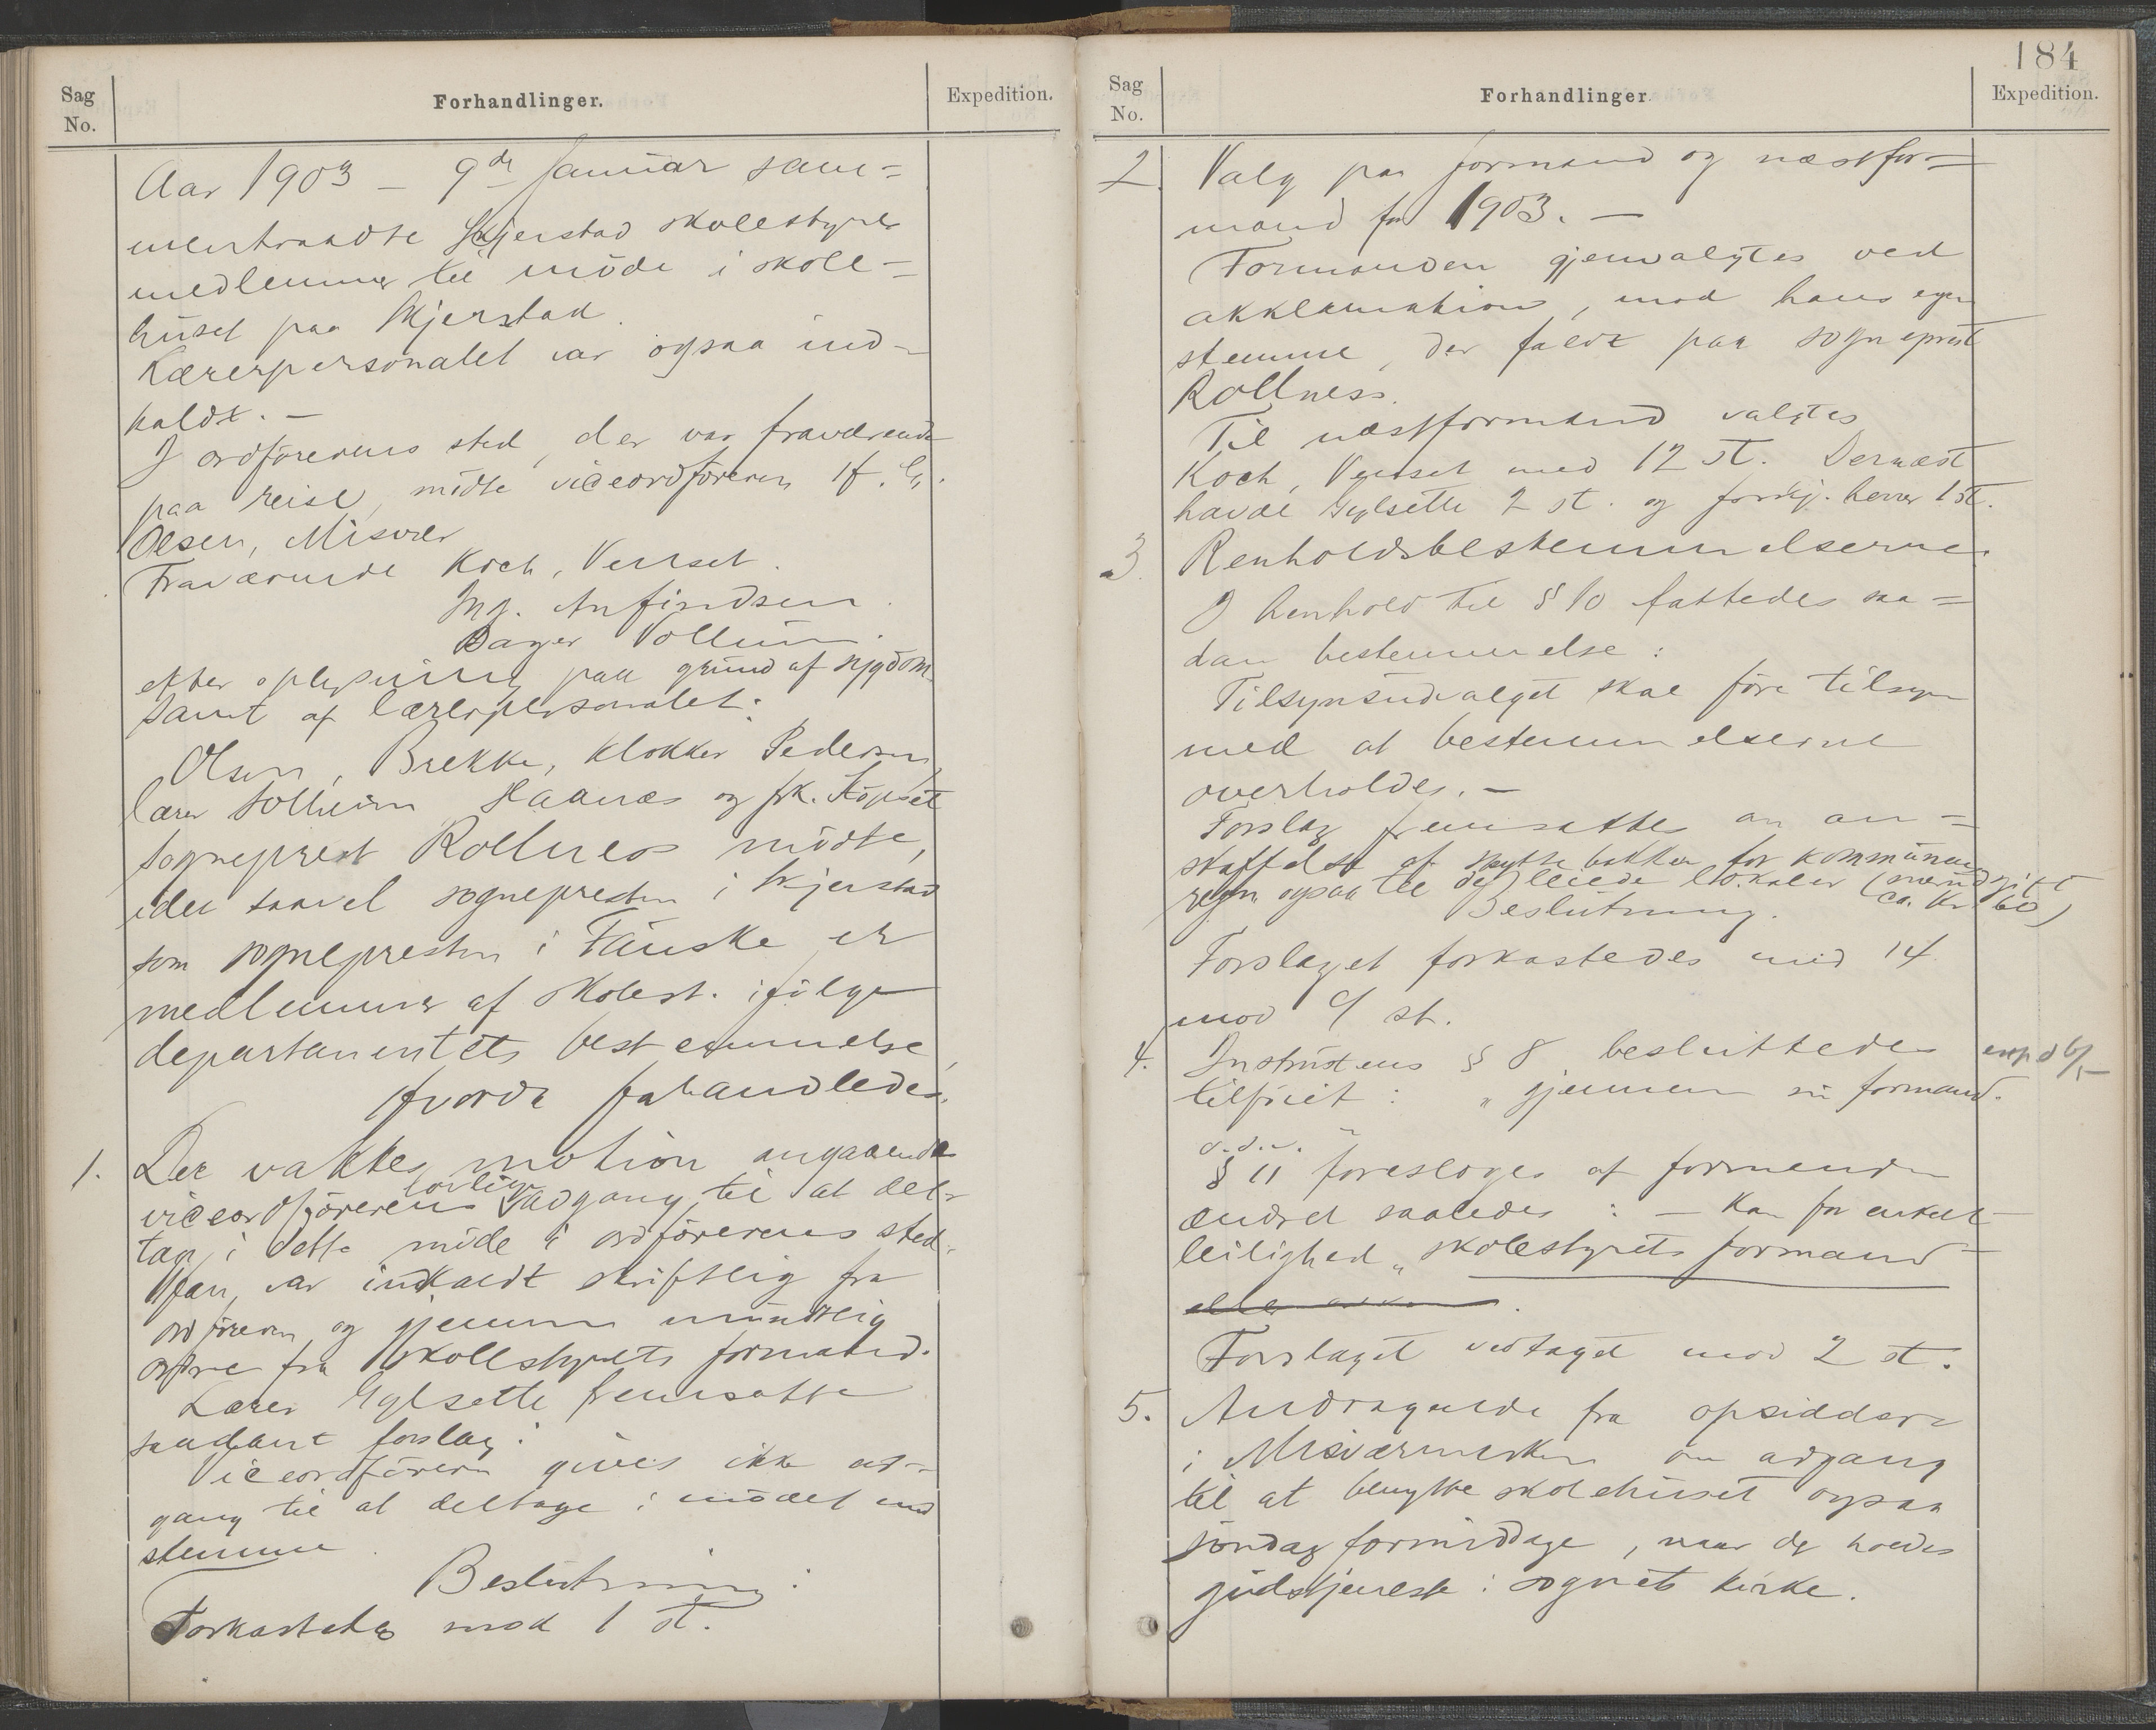 Sag
No.
Forhandlinger.
Expedition.
Aar 1903 – 9de Januar sam=
mentraadte Skjerstad skolestyres
medlemmer til møde i skole=
huset paa Skjerstad.
Lærerpersonalet var ogsaa ind-
kaldt. –
I ordførerens sted, der var fraværende
paa reise, mødte viceordføreren H. C.
Olsen, Misvær
Fraværende Koch, Venset.
Ing. Anfindsen.
Bager Vollum.
efter oplysning paa grund af sygdom.
samt af lærerpersonalet:
Olsen, Brekke, klokker Pedersen,
lærer Solheim Haanæs og frk. Köpset
Sogneprest Rollness mødte,
idet saavel sognepresten i Skjerstad
som sognepresten i Fauske er
medlemmer af skolest. ifølge
departementets bestemmelse,
Hvorda forhandledes.
1. Der vaktes motion angaaende
lovlige
viceordførerens adgang til at del-
tage i dette møde i ordførerens sted.
Han var indkaldt skriftlig fra
ordføreren og gjennem mundtlig
ordre fra skolestyrets formand.
Lærer Gylseth fremsatte
saadant forslag:
Viceordføreren gives ikke ad-
gang til at deltage i mødet med
stemme.
Beslutning:
Forkastedes mod 1 st.
184
Sag
No.
Forhandlinger
Expedition.
2. Valg paa formand og næstfor=
mand for 1903. –
Formanden gjenvalgtes ved
akklamation, mod hans egen
stemme, der faldt paa sogneprest
Rollness.
Til næstformand valgtes
Koch, Venset med 12 st. Dernæst
havde Gylseth 2 st. og forskj. herrer 1 st.
3. Renholdsbestemmelserne.
I henhold til § 10 fattedes saa=
dan bestemmelse:
Tilsynsudvalget skal føre tilsyn
med at bestemmelserne
overholdes. –
Forslag fremsattes om an=
skaffelse af spyttebakker for kommunens
regn. ogsaa til de leiede lokaler (mundgift
ca. kr 60)
Beslutning.
Forslaget forkastedes med 14
mod 9 st.
4. Instruxens § 8 besluttedes
exp d 6/5
tilføiet: "gjennem sin formand.
d.d.v.
§ 11 foresloges af formanden
ændret saaledes: – kan for enkelt
leilighed "skolestyrets formand
eller
Forslaget vedtaget mod 2 st.
5. Andragende fra opsiddere
i Misværmarken om adgang
til at benytte skolehuset ogsaa
søndag formiddage, naar der holdes
gudstjeneste i sognets kirke.